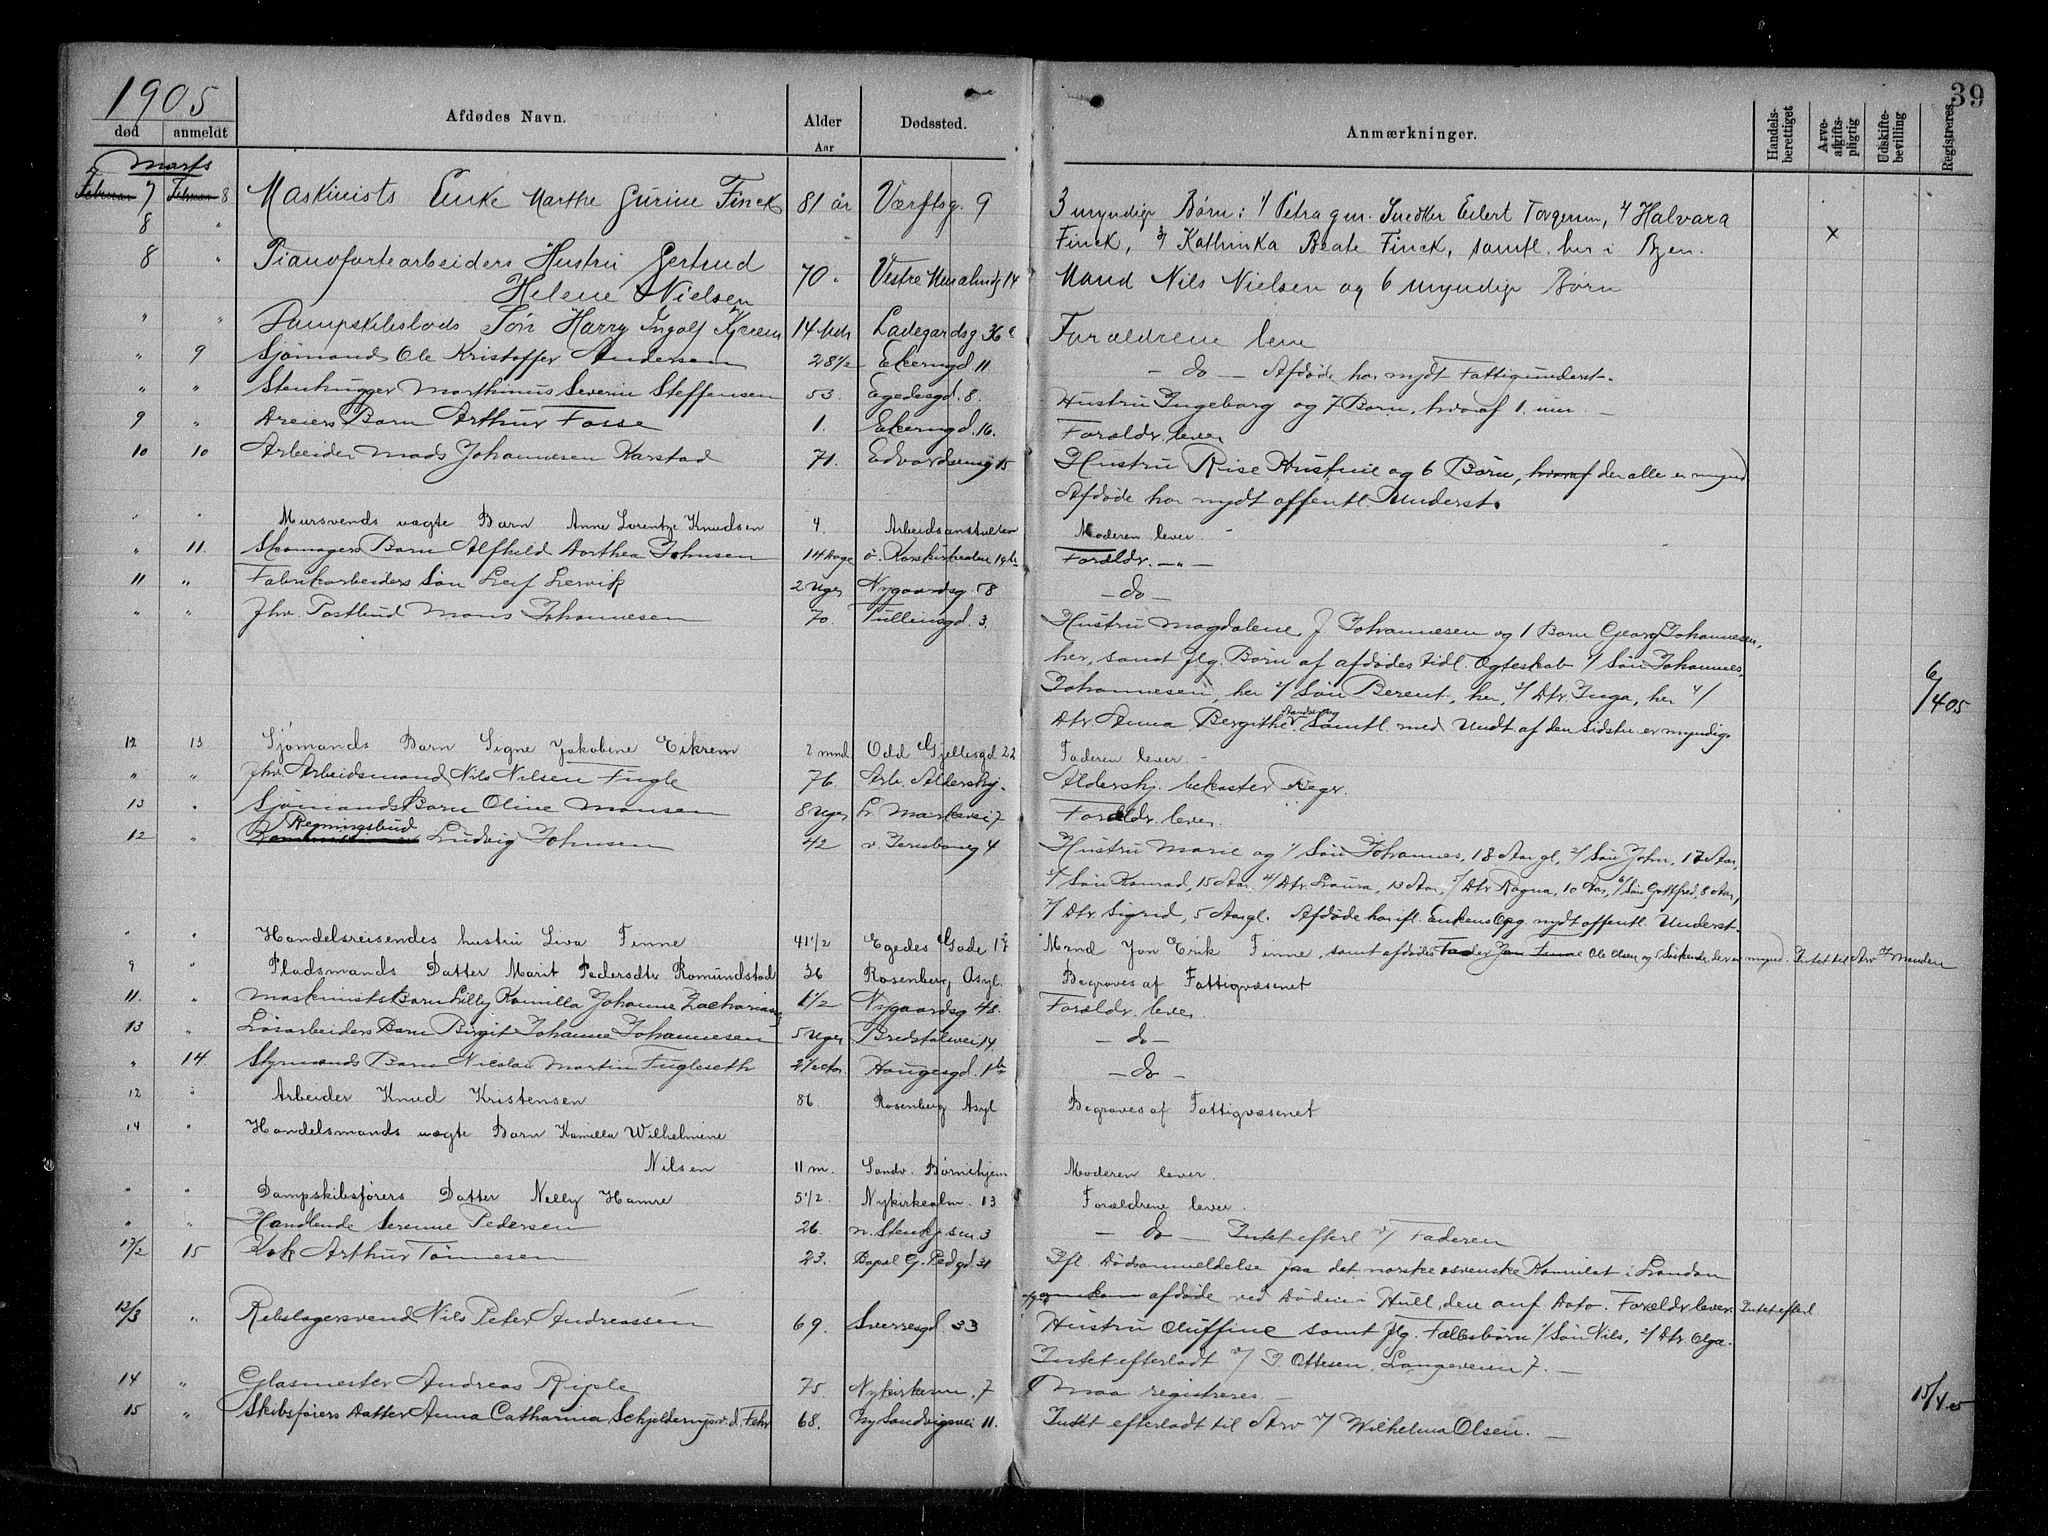 1905
39
død anmeldt Afdødes Navn. Alder Aar Dødssted. Anmærkninger. Handels-berettiget Arve-afgifts-pligtig Udskifte-bevilling Registreres
Marts
Februar 7 Februar 8 Maskinists Enke Marthe Gurine Finck 81 år Værftsg. 9 3 myndige Børn: 1/ Petra gm. Snedker Eilert Torgersen, 2/ Halvara
8 " Finck, 3/ Kathinka Beate Finck, samtl. her i Byen. x
8 " Pianofortearbeiders Hustru Gertrud
Helene Nielsen 70 " Vestre 14 Mand Nils Nielsen og 6 myndige Børn
" " Dampskibslods Søn Harry Ingolf 14 Mdr Ladegårdsg. 36 Forældrene leve
" 9 Sjømand Ole Kristoffer Andersen 28 1/2 Ekerengd 11 - do - Afdøde har nydt Fattigunderst.
" " Stenhugger Marthinus Severin Steffensen 53. Egedesgd. 8. Hustru Ingeborg og 7 Børn, hvoraf 1 um. -
9 " Dreiers Barn Arthur Fosse 1. Ekerengd. 16. Forældr. lever
10 10 Arbeider Mads Johannesen Karstad 71. Edvardsensg 15 Hustru og 6 Børn, hvoraf der alle er mynd
Afdøde har nydt offentl. Underst.
" " Mursvends uægte Barn Anne Lorentze Knudsen 4 Arbeidsanstalten Moderen lever. -
" 11. Skomagers Barn Alfhild Dorthea Johnsen 14 Dage ø. Korskirkealm 19 Forældr. - " -
11 " Fabrikarbeiders Søn Leif Lervik 2 Uger Nygaardsg 58 - do -
" " fhv. Postbud Mons Johannesen 70. Tullinsgd. 3. Hustru Magdalene J Johannesen og 1 Barn Georg Johannesen,
her, samt flg. Børn af afdødes tidl. Ægteskab 1/ Søn Johannes
Johannesen, her 2/ Søn Berent, her, 3/ Dtr. Inga, her 4/ 6/4 05
Dtr. Anna Bergithe samtl. med Undt af den sidste er myndig
12 13 Sjømands Barn Signe Jakobine Eikrem 2 mnd Odd Gjellesgd 22 Faderen lever. -
" " fhv. Arbeidsmand Nils Nilsen Fugle 76. Arb. Aldershj. Aldershj. bekoster Begr.
13 " Sjømands Barn Oline Monsen 8 Uger L. Markevei 7 Forældr. lever.
Regningsbud
12 " Ludvig Johnsen 42 4 Hustru Marie og 1/ Søn Johannes, 18 Aar gl, 2/ Søn John, 17 Aar,
3/ Søn Konrad, 15 Aar, 4/ Dtr. Laura, 13 Aar, 5/ Dtr Ragna, 10 Aar, 6/ Søn Gottfred, 8 Aar,
7/ Dtr Sigrid, 5 Aar gl. Afdøde har ifl. Enkens Opg nydt offentl. Underst.
" " Handelsreisendes hustru Liva Finne 41 1/2 Egedes Gade 17 Mand Jon Erik Finne, samt afdødes Fader Jon Finne Ole Olsen og 5 Søskende, der er mynd. Intet til Arv v/ Manden
9 " Pladsmands Datter Marit Pedersdtr Romundstad 36 Rosenberg Asyl. Begraves af Fattigvæsenet
11. " Maskinists Barn Lilly Kamilla Johanne Zachariasen 1 1/2 Nygaardsg 48. Forældr. lever.
13 " Løsarbeiders Barn Birgit Johanne Johannesen 5 Uger Bredstølvei 14. - do -
" 14. Styrmands Barn Nicolai Martin Fugleseth 2 1/2 Aar. Haugesgd. 1b - do -
12 " Arbeider Knud Kristensen 86 Rosenberg Asyl Begraves af Fattigvæsenet
14 " Handelsmands uægte Barn Kamilla Wilhelmine
Nilsen 11 m. Sandv. Børnehjem Moderen lever.
" " Dampskibsførers Datter Nelly Hamre 5 1/2. Nykirkealm. 13 Forældrene lever.
" " Handlende Serenne Pedersen 26. n. 3 - do - Intet efterl v/ Faderen
17/2 15 Kok Arthur Tønnesen 23. 31 Ifl. Dødsanmeldelse fra det norske & svenske Konsulat i London
afdøde ved Døden i Hull, den anf. Dato. Forældr lever. Intet efterl
12/3 " Rebslagersvend Nils Peter Andreassen 69. Sverresgd. 33 Hustru Oluffine samt flg. Fællesbørn 1/ Søn Nils, 2/ Dtr Olga.
Intet efterladt v/ J. Ottesen, Langeveien 7. -
14 " Glasmester Andreas Riple 75. Nykirkesm. 7 Maa registreres. - 15/4.05
15 " Skibsførers Datter Anna Catharina Schjelderup v. d. Fehr 68. Ny Sandvigsvei 11. Intet efterladt til Arv v/ Wilhelma Olsen. -